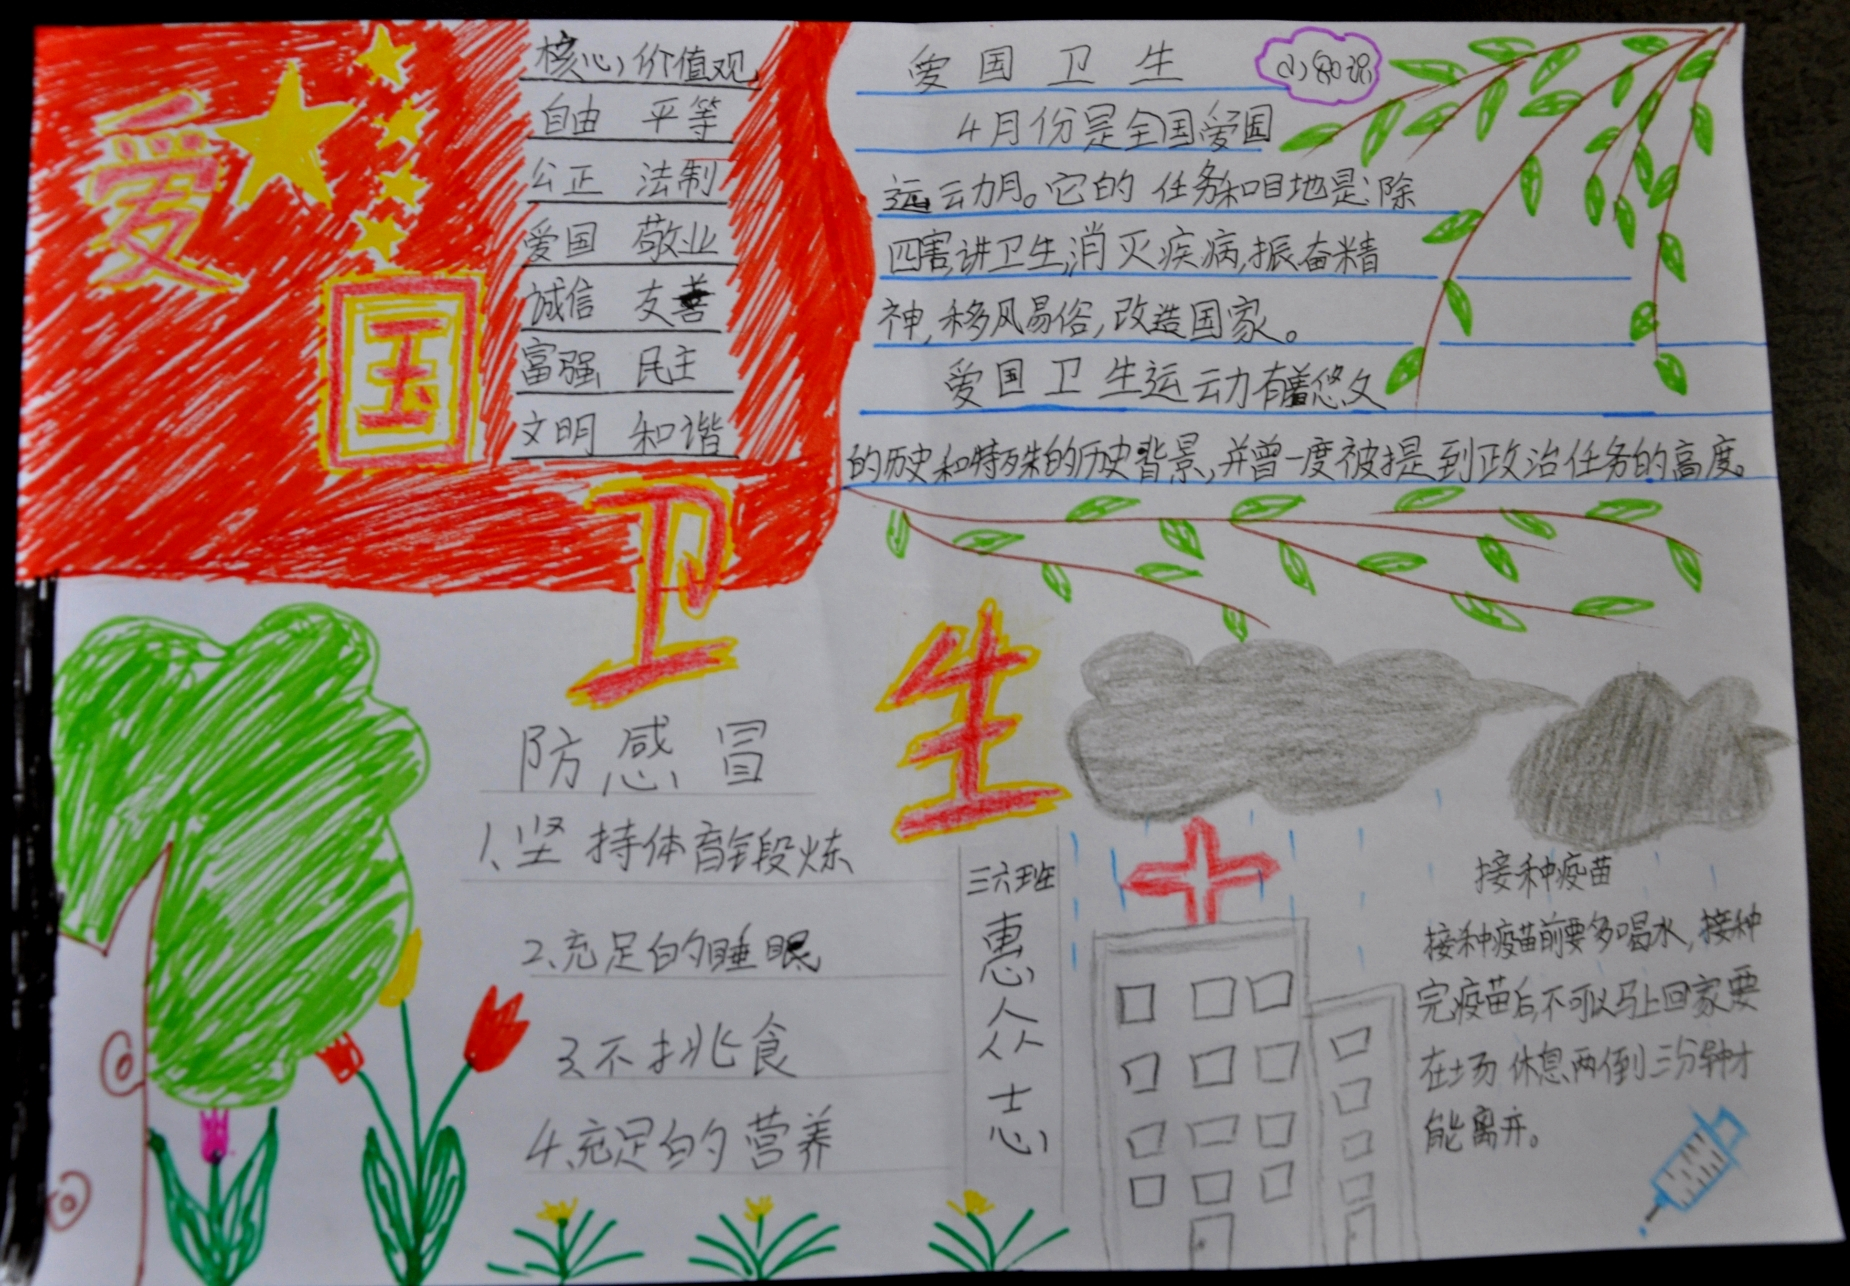 爱国卫生
核心价值观
自由 平等
公正 法制
爱国 敬业
诚信 友善
富强 民主
文明 和谐
爱国卫生
小知识
4月份是全国爱国
运动月。它的任务和目地是:除
四害,讲卫生,消灭疾病,振奋精
神,移风易俗,改造国家。
爱国卫生运动有着悠久
的历史和特殊的历史背景,并曾一度被提到政治任务的高度。
防感冒
1、坚持体育锻炼
2、充足的睡眠
3、不挑食
4、充足的营养
三六班
惠众志
接种疫苗
接种疫苗前要多喝水,接种
完疫苗后,不可以马上回家要
在场休息两到三分钟才
能离开。